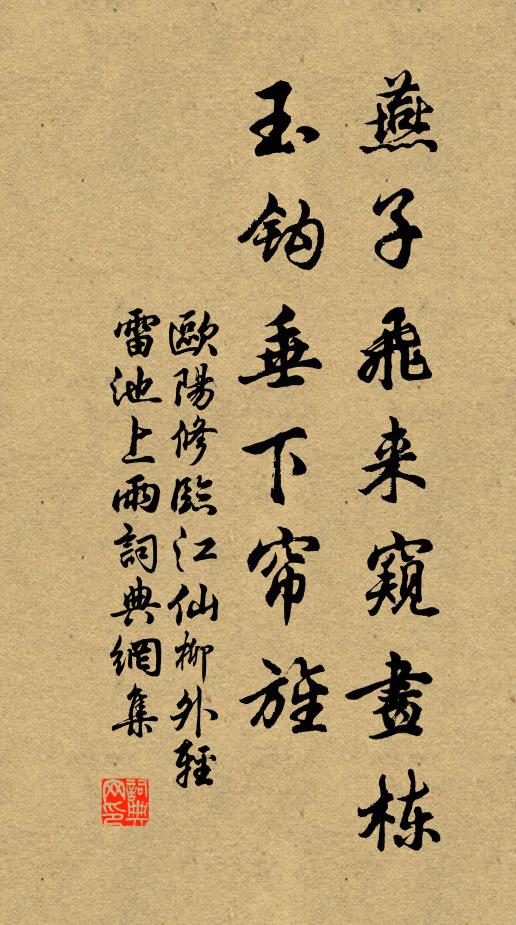 燕子飛来窺畫棟
玉鈎垂下帘旌
歐陽修臨江仙柳外輕
雷池上雨詞典網集
詞典网印